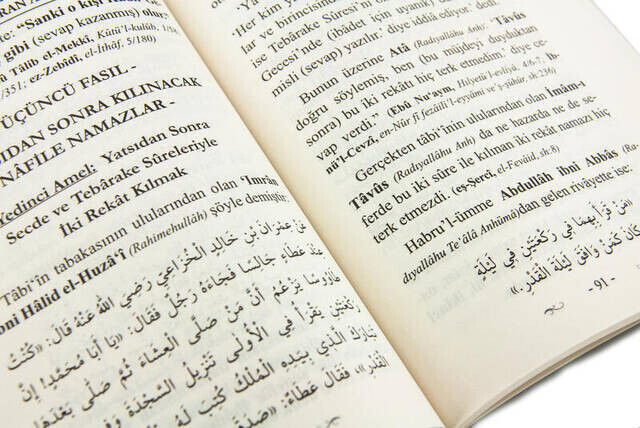 RAN A
te: "Sanki o kişi Kadir Ge-
gibi (sevap kazanmış) olur."
Tâlib el-Mekkî, Kûtü'l-kulûb, 1/
/351; ez-Zebîdî, el-İthâf, 5/180)
ÜÇÜNCÜ FASIL -
SIDAN SONRA KILINACAK
NÂFİLE NAMAZLAR -
Yedinci Amel: Yatsıdan Sonra
Secde ve Tebârake Sûreleriyle
İki Rekât Kılmak
Tâbi'în tabakasının ulularından olan 'Imrân
bni Hâlid el-Huzâ'î (Rahimehullâh) şöyle demiştir:
عَنْ عِمْرَانَ بْنِ خَالِدٍ الْخُزَاعِيِّ رَضِيَ اللّٰهُ عَنْهُ قَالَ: «كُنْتُ
عِنْدَ عَطَاءٍ جَالِسًا فَجَاءَهُ رَجُلٌ فَقَالَ: «يَا أَبَا مُحَمَّدٍ! إِنَّ
طَاوُوسًا يَزْعُمُ أَنَّ مَنْ صَلَّى الْعِشَاءَ ثُمَّ صَلَّى بَعْدَهَا
رَكْعَتَيْنِ يَقْرَأُ فِي الْأُولَى تَنْزِيلُ السَّجْدَةِ وَفِي
تَبَارَكَ الَّذِي بِيَدِهِ الْمُلْكُ كُتِبَ لَهُ
الْقَدْرِ»، فَقَالَ عَطَاءٌ: «صَدَقَ
Her kim ya
lar ve birincisinde
ise Tebârake Sûresi'n
Gecesi'nde (ibâdet için uyanık)
misli (sevap) yazılır.' diye iddiâ ediyor' dedi.
Bunun üzerine Atâ (Radıyallâhu Anh): 'Tâvûs
doğru söylemiş, ben (bu müjdeyi duyduktan
sonra) bu iki rekâtı hiç terk etmedim.' diye ce-
vap verdi." (Ebû Nu'aym, Hilyetü'l-evliyâ, 4/6,7; İb-
nü'l-Cevzî, en-Nûr fî fezâili'l-eyyâmi ve'ş-şühûr, sh:236)
Gerçekten tâbi'în'in ulularından olan İmâm-ı
Tâvûs (Radıyallâhu Anh) da ne hazarda ne de se-
ferde bu iki sûre ile kılınan iki rekât namazı hiç
terk etmezdi. (eş-Şercî, el-Fevâid, sh:8)
Habru'l-ümme Abdullâh ibni Abbâs
dıyallâhu Te'âlâ Anhümâ)dan gelen rivâyette ise:
«مَنْ قَرَأَ بِهِمَا فِي رَكْعَتَيْنِ فِي لَيْلَةٍ
كَانَ كَمَنْ وَافَقَ لَيْلَةَ الْقَدْرِ.»
-91-